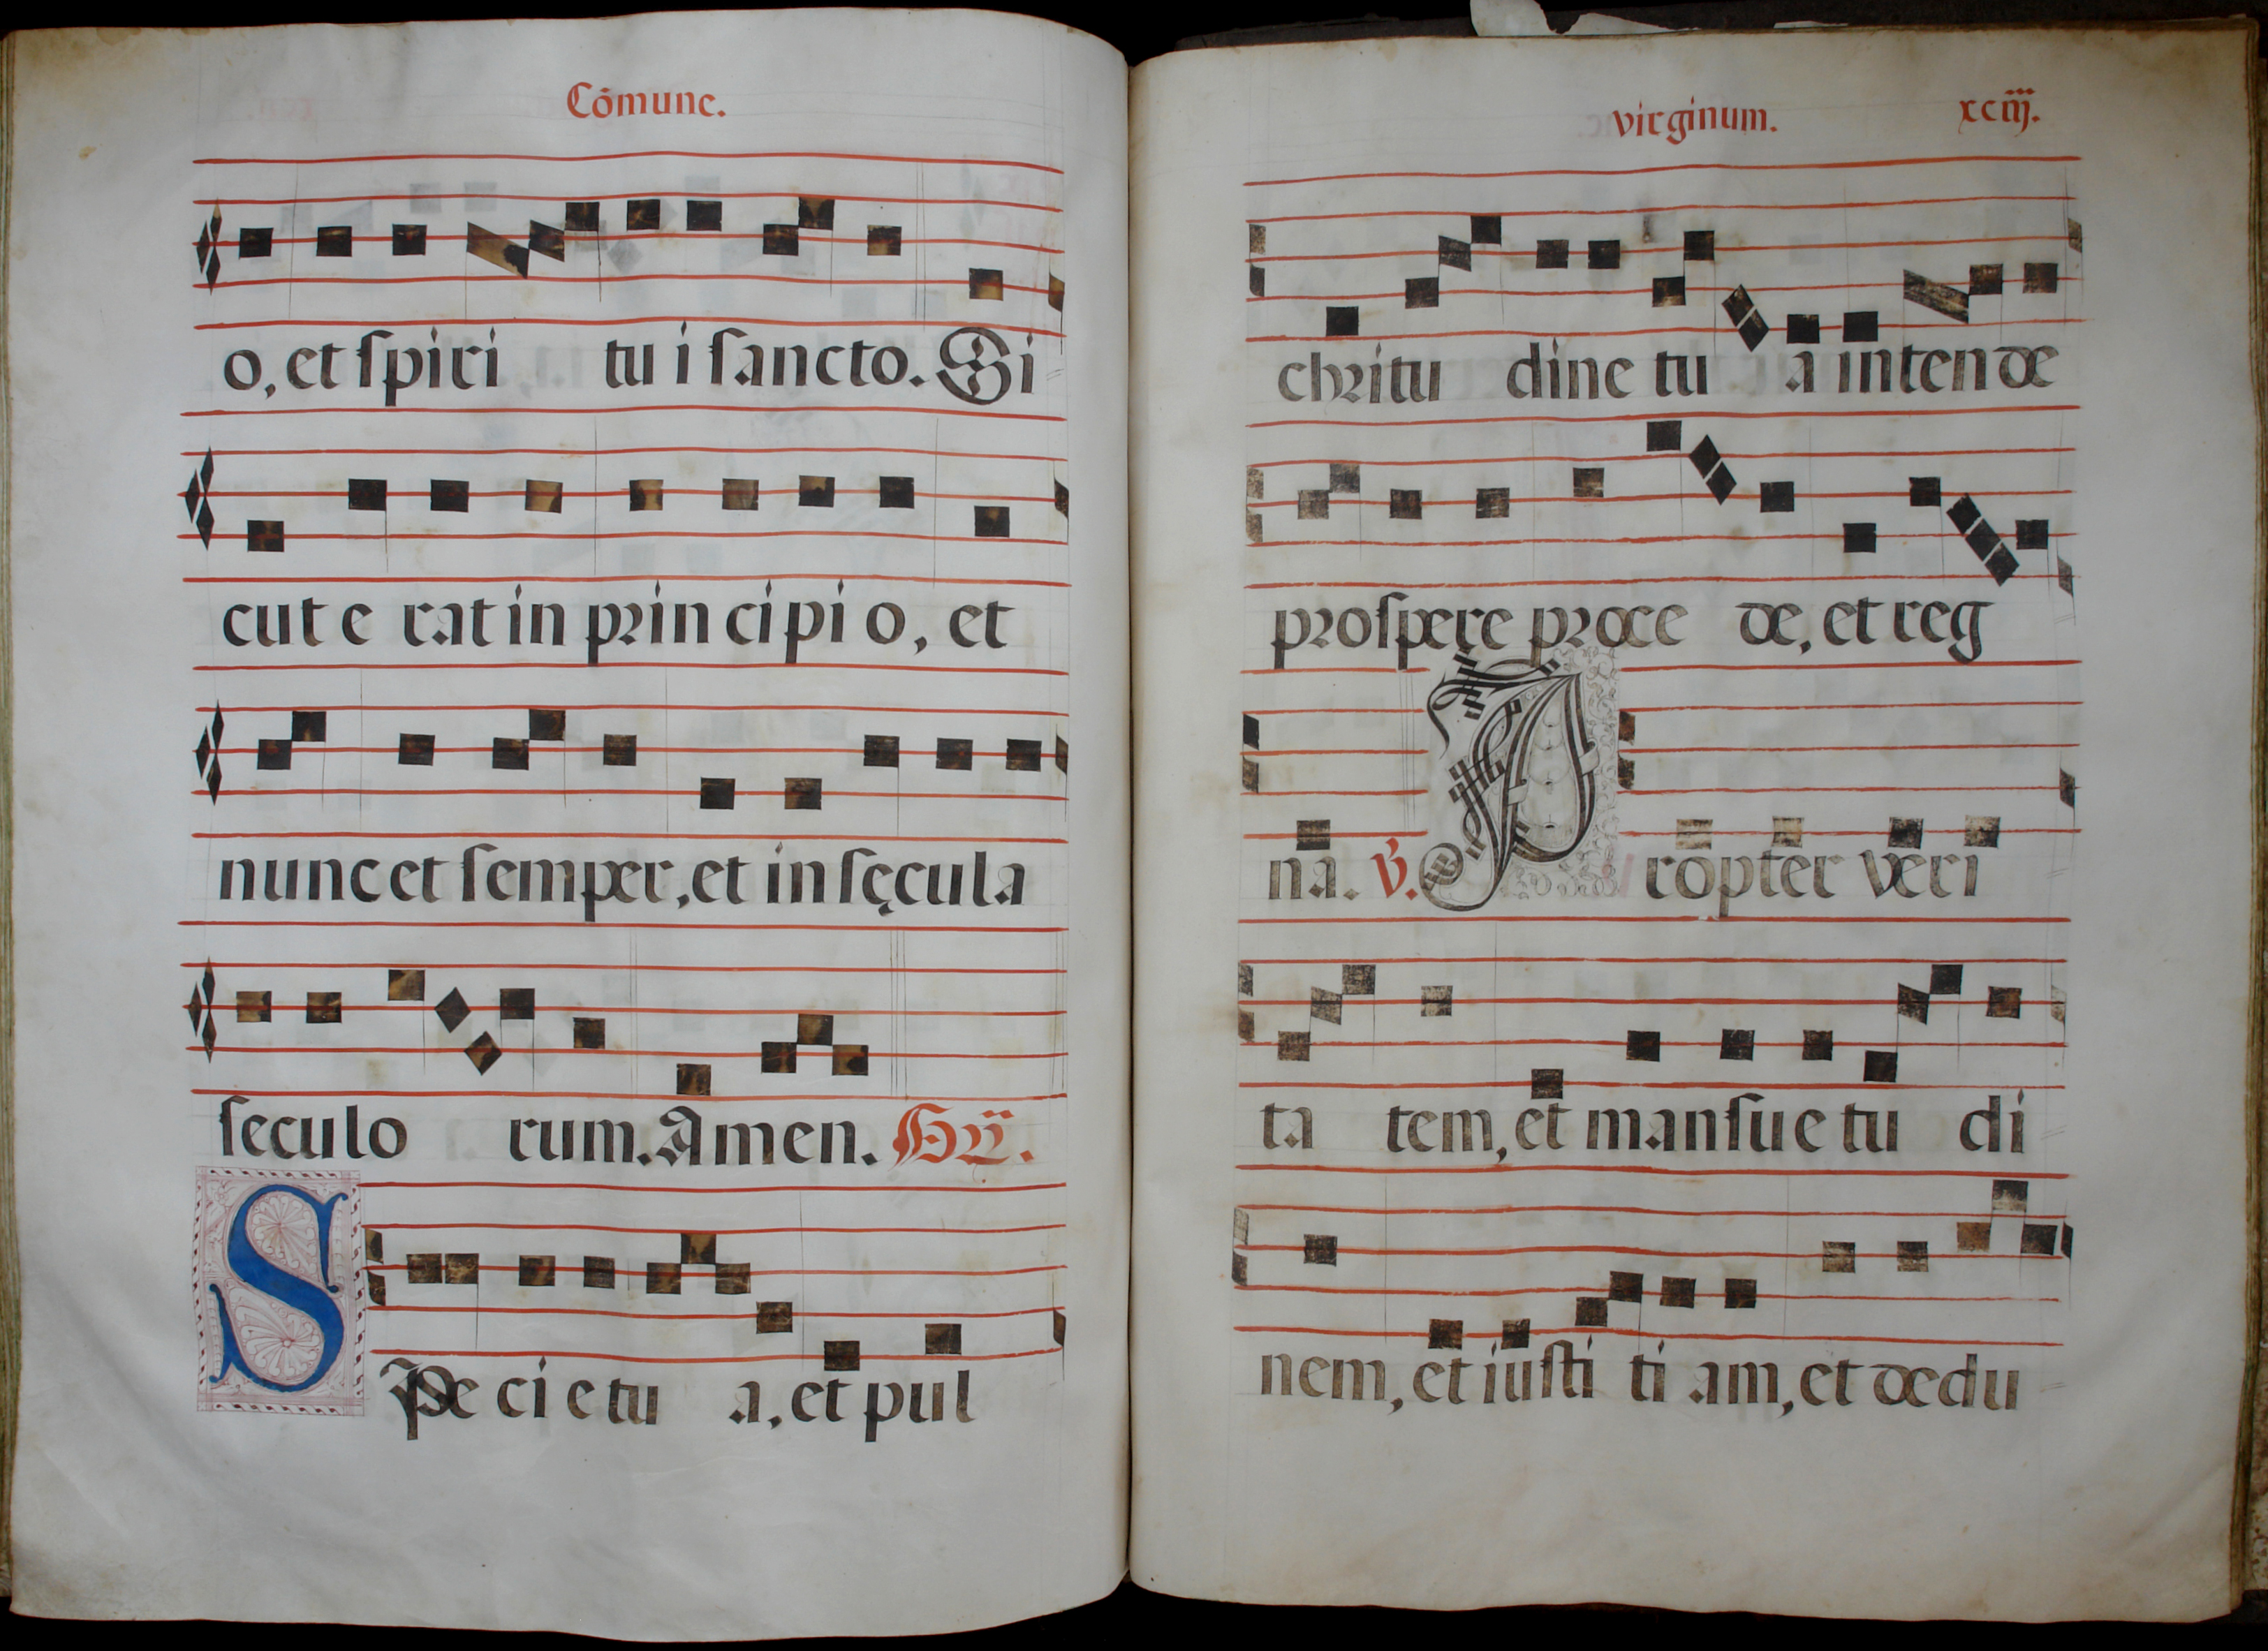 Cōmune.
o, et ſpiri tu i ſancto. Si
cut e rat in prin ci pi o, et
nunc et ſemper, et in ſęcula
ſeculo rum. Amen.
SPe ci e tu a, et pul
virginum. xciij.
chritu dine tu a inten de
proſpere proce de, et reg
na. ℣. Propter veri
ta tem, et manſue tu di
nem, et iuſti ti am, et dedu